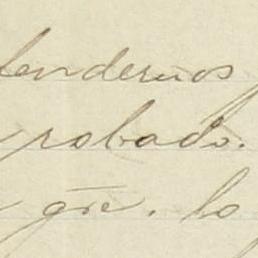 tendernos
probado.
gře. lo